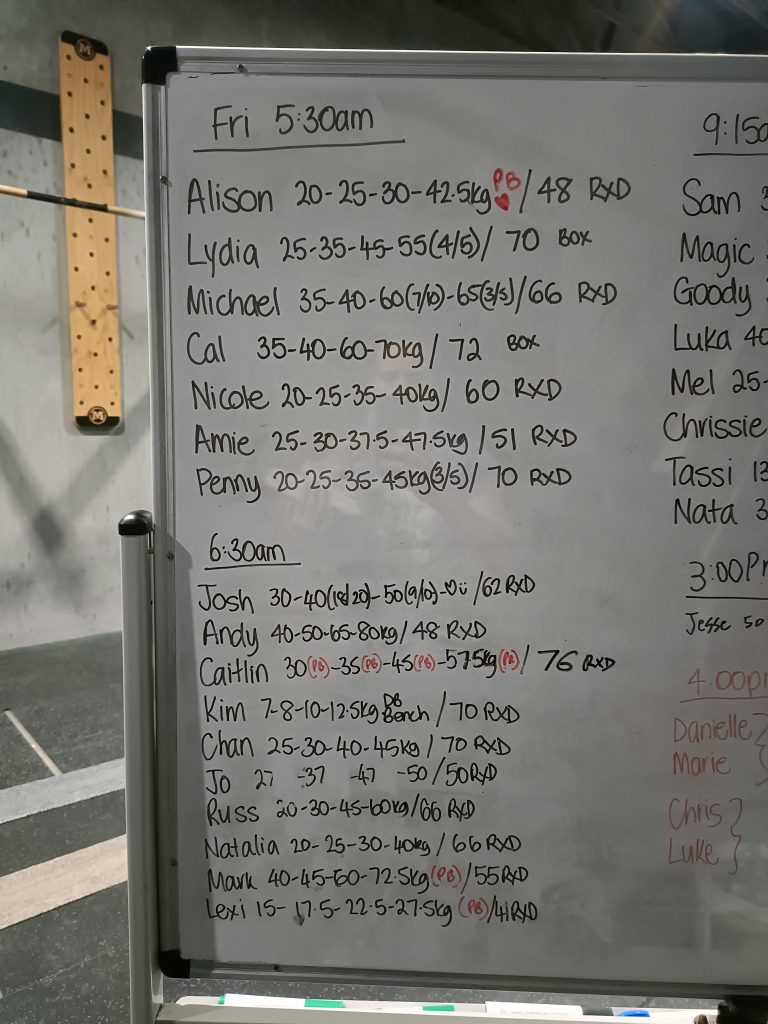 Fri 5:30am
Alison 20-25-30-42.5kg PB ♥ / 48 RXD
Lydia 25-35-45-55(4/5)/ 70 BOX
Michael 35-40-60(7/10)-65(3/5)/66 RXD
Cal 35-40-60-70kg / 72 BOX
Nicole 20-25-35-40kg / 60 RXD
Amie 25-30-37.5-47.5kg / 51 RXD
Penny 20-25-35-45kg(3/5)/ 70 RXD
6:30am
Josh 30-40(18/20)-50(9/10)-♡ü /62 RXD
Andy 40-50-65-80kg / 48 RXD
Caitlin 30(PB)-35(PB)-45(PB)-57.5kg(PB) / 76 RXD
Kim 7-8-10-12.5kg DB Bench / 70 RXD
Chan 25-30-40-45kg / 70 RXD
Jo 27 -37 -47 -50 / 50 RXD
Russ 20-30-45-60kg / 66 RXD
Natalia 20-25-30-40kg / 66 RXD
Mark 40-45-60-72.5kg (PB) / 55 RXD
Lexi 15-17.5-22.5-27.5kg (PB) / 41 RXD
9:15a
Sam 3
Magic
Goody
Luka 40
Mel 25-
Chrissie
Tassi 13
Nata 3
3:00P
Jesse 50
4:00p
Danielle }
Marie }
Chris }
Luke }
M
M